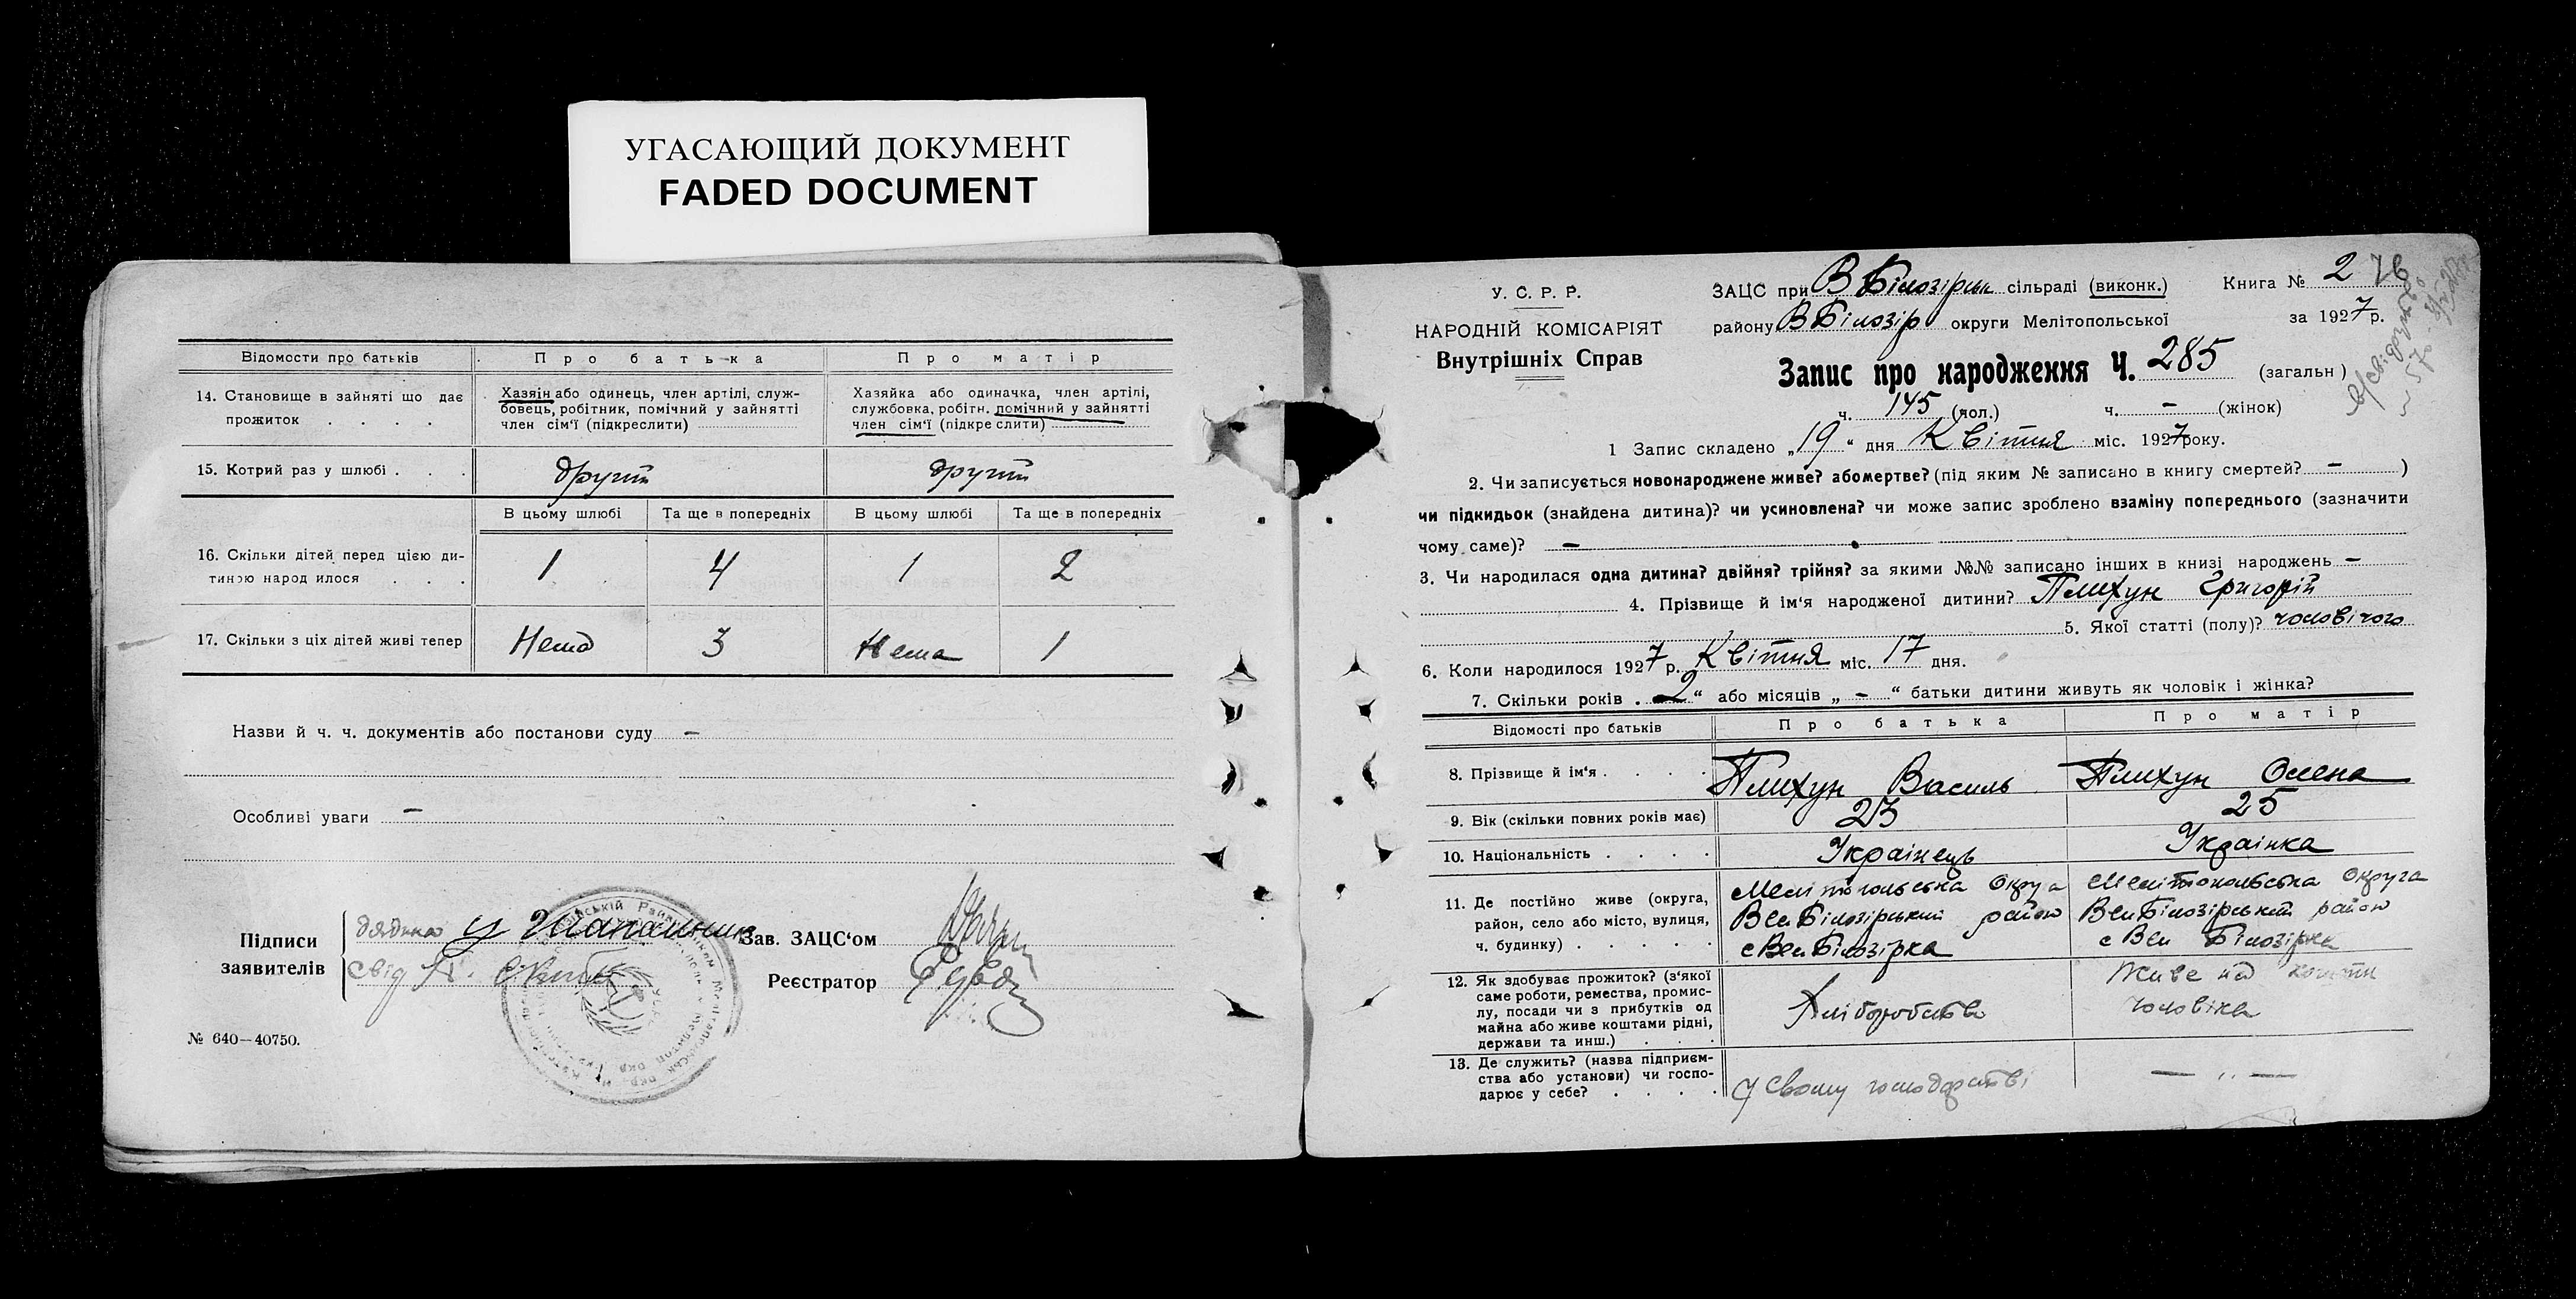 УГАСАЮЩИЙ ДОКУМЕНТ
FADED DOCUMENT
Відомости про батьків Про батька Про матір
14. Становище в зайняті що дає прожиток . . . .
Хазяін або одинець, член артілі, служ-
бовець, робітник, помічний у зайнятті
член сім'ї (підкреслити)
Хазяйка або одиначка, член артілі,
службовка, робітн. помічний у зайнятті
член сім'ї (підкреслити)
15. Котрий раз у шлюбі . . . другий другий
В цьому шлюбі Та ще в попередніх В цьому шлюбі Та ще в попередніх
16. Скільки дітей перед цією ди-
тиною народилося . . . 1 4 1 2
17. Скільки з ціх дітей живі тепер Нема 3 Нема 1
Назви й ч. ч. документів або постанови суду —
Особливі уваги —
Підписи
заявителів
дядина
свід
Зав. ЗАЦС'ом
Реєстратор
№ 640—40750.
У. С. Р. Р.
НАРОДНІЙ КОМІСАРІЯТ
Внутрішніх Справ
ЗАЦС при В Білозірськ сільраді (виконк.) Книга № 2
району В Білозір округи Мелітопольської за 1927 р.
Запис про народження Ч. 285 (загальн)
ч. 145 (чол.) ч. — (жінок)
1 Запис складено „19" дня Квітня міс. 1927 року.
2. Чи записується новонароджене живе? або мертве? (під яким № записано в книгу смертей? — )
чи підкидьок (знайдена дитина)? чи усиновлена? чи може запис зроблено взаміну попереднього (зазначити
чому саме)? —
3. Чи народилася одна дитина? двійня? трійня? за якими №№ записано інших в книзі народжень —
4. Прізвище й ім'я народженої дитини? Плихун Григорій
5. Якої статті (полу)? чоловічого
6. Коли народилося 1927 р. Квітня міс. 17 дня.
7. Скільки років . 2 " або місяців „ — " батьки дитини живуть як чоловік і жінка?
Відомості про батьків Про батька Про матір
8. Прізвище й ім'я . . . . Плихун Василь Плихун Олена
9. Вік (скільки повних років має) 23 25
10. Національність . . . . Українець Українка
11. Де постійно живе (округа,
район, село або місто, вулиця,
ч. будинку) . . . . .
Мелітопольська Округа
Вел Білозірський район
с Вел Білозірка
Мелітопольська Округа
Вел Білозірський район
с Вел Білозірка
12. Як здобуває прожиток? (з'якої
саме роботи, ремества, промис-
лу, посади чи з прибутків од
майна або живе коштами рідні,
держави та инш.) . . .
Хліборобство
Живе на кошти
чоловіка
13. Де служить? (назва підприєм-
ства або установи) чи госпо-
дарює у себе? . . . .
У своему господарстві
— „ —